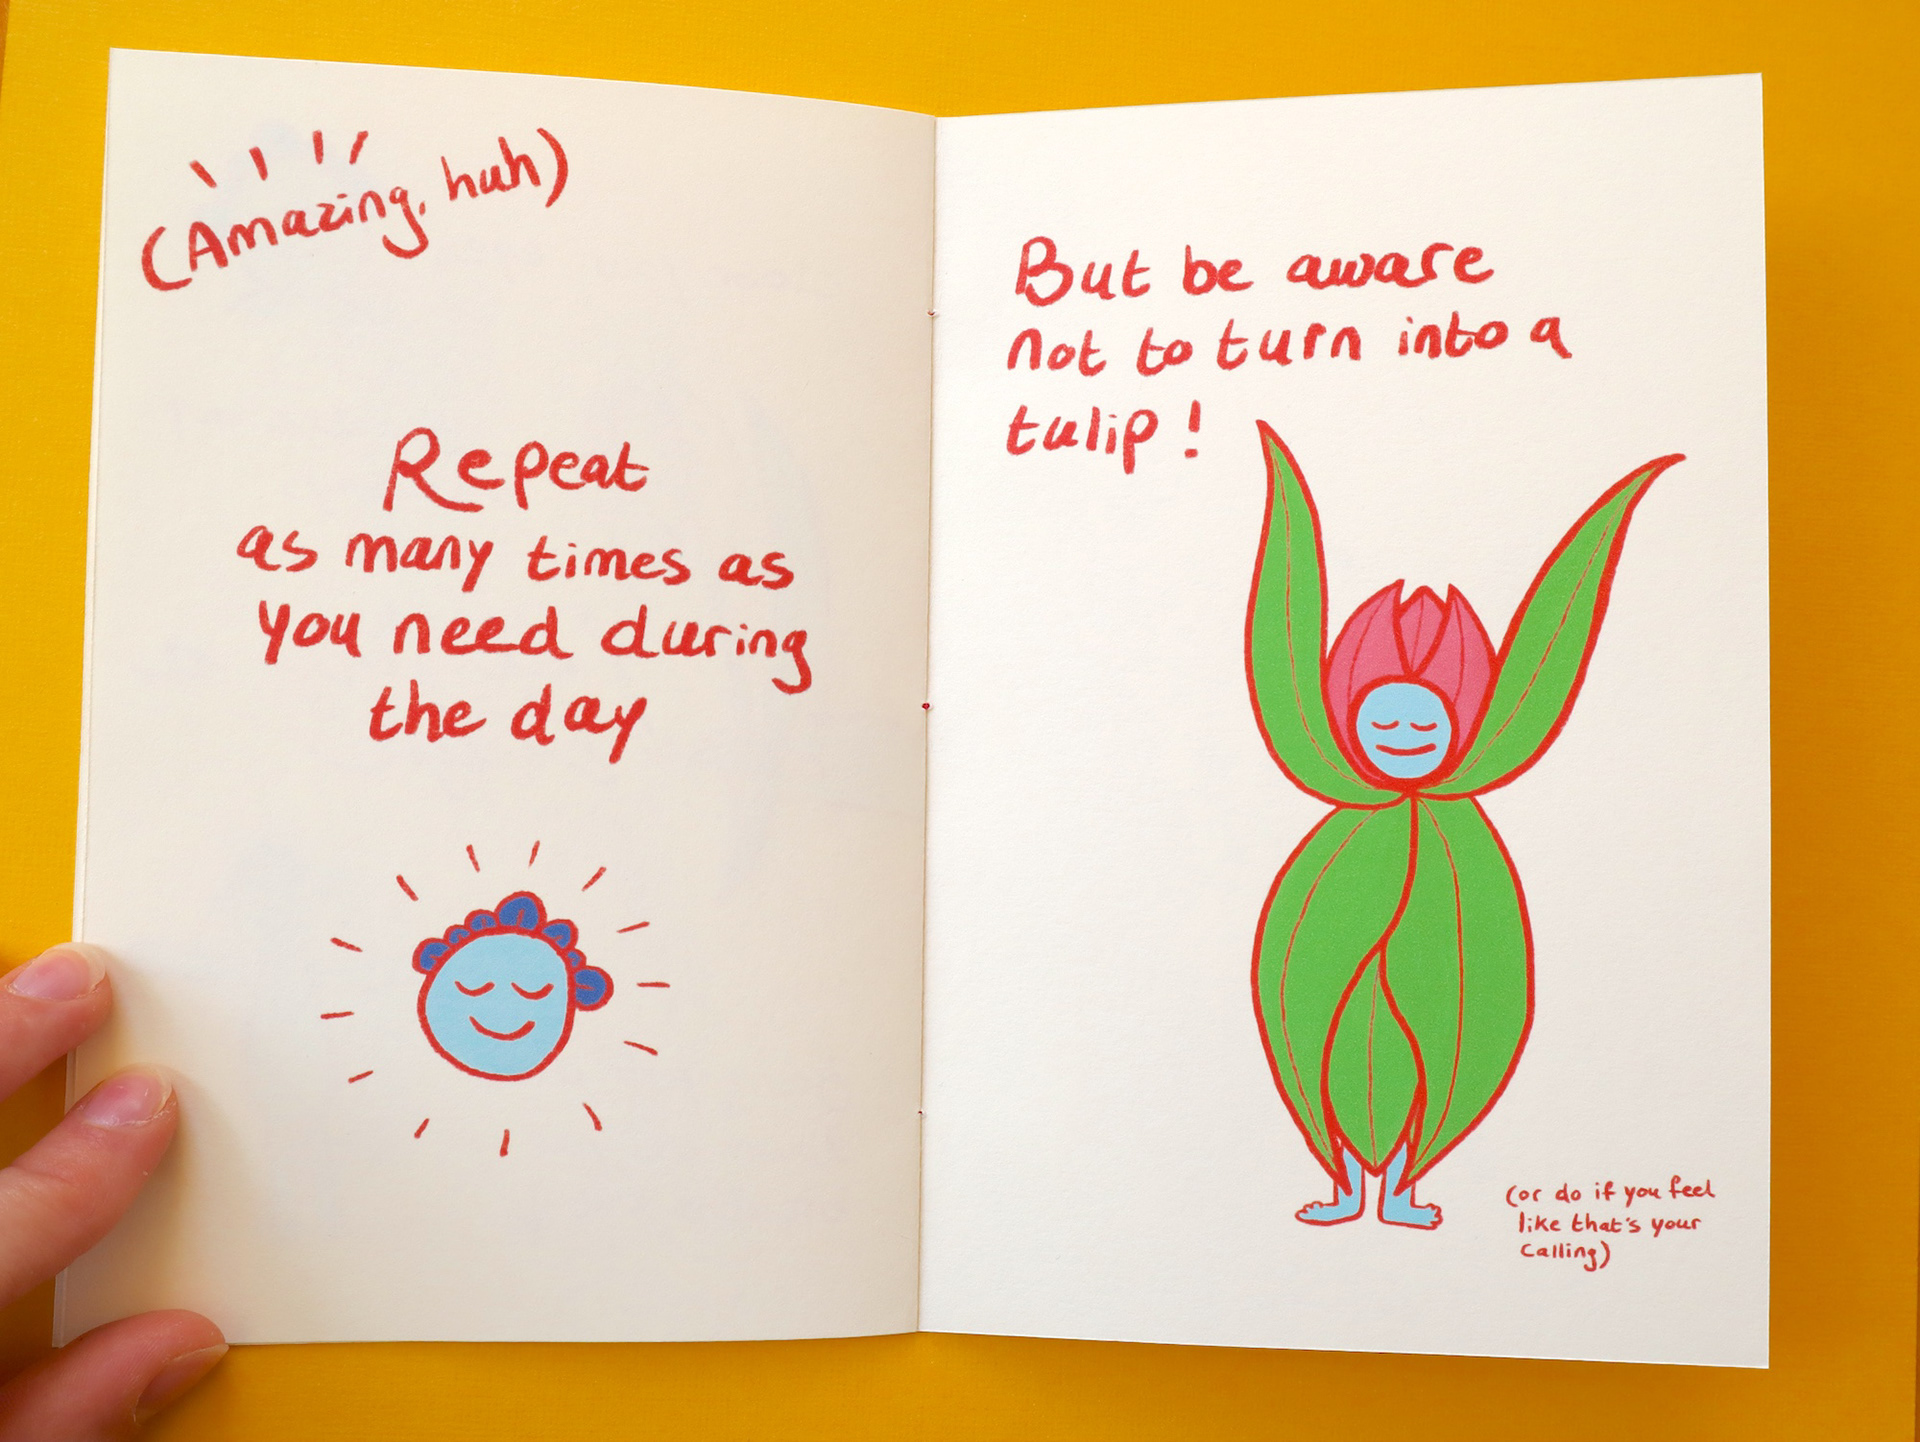 (Amazing, huh)
Repeat
as many times as
you need during
the day
But be aware
not to turn into a
tulip!
(or do if you feel
like that's your
calling)